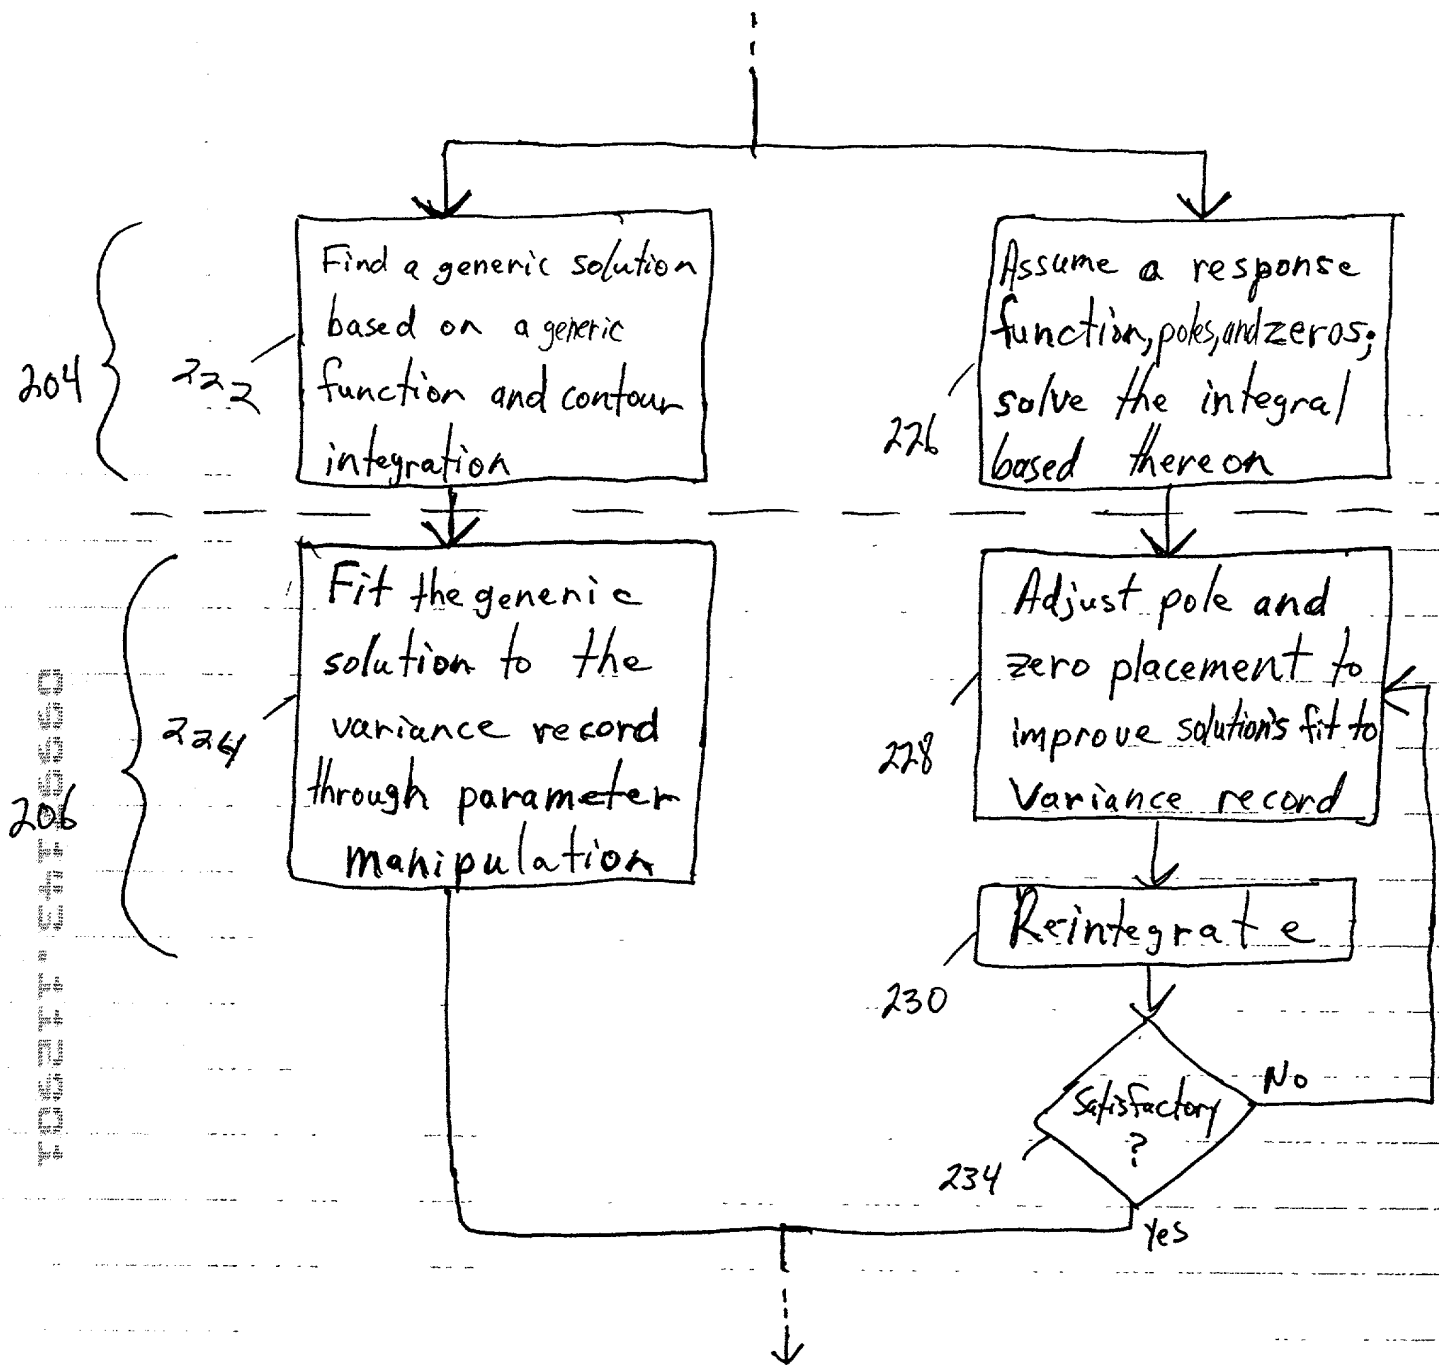 Find a generic solution
based on a generic
function and contour
integration
204
222
Assume a response
function, poles, and zeros;
solve the integral
based thereon
226
Fit the generic
solution to the
variance record
through parameter
manipulation
206
224
Adjust pole and
zero placement to
improve solution's fit to
variance record
228
Reintegrate
230
Satisfactory
?
No
234
Yes